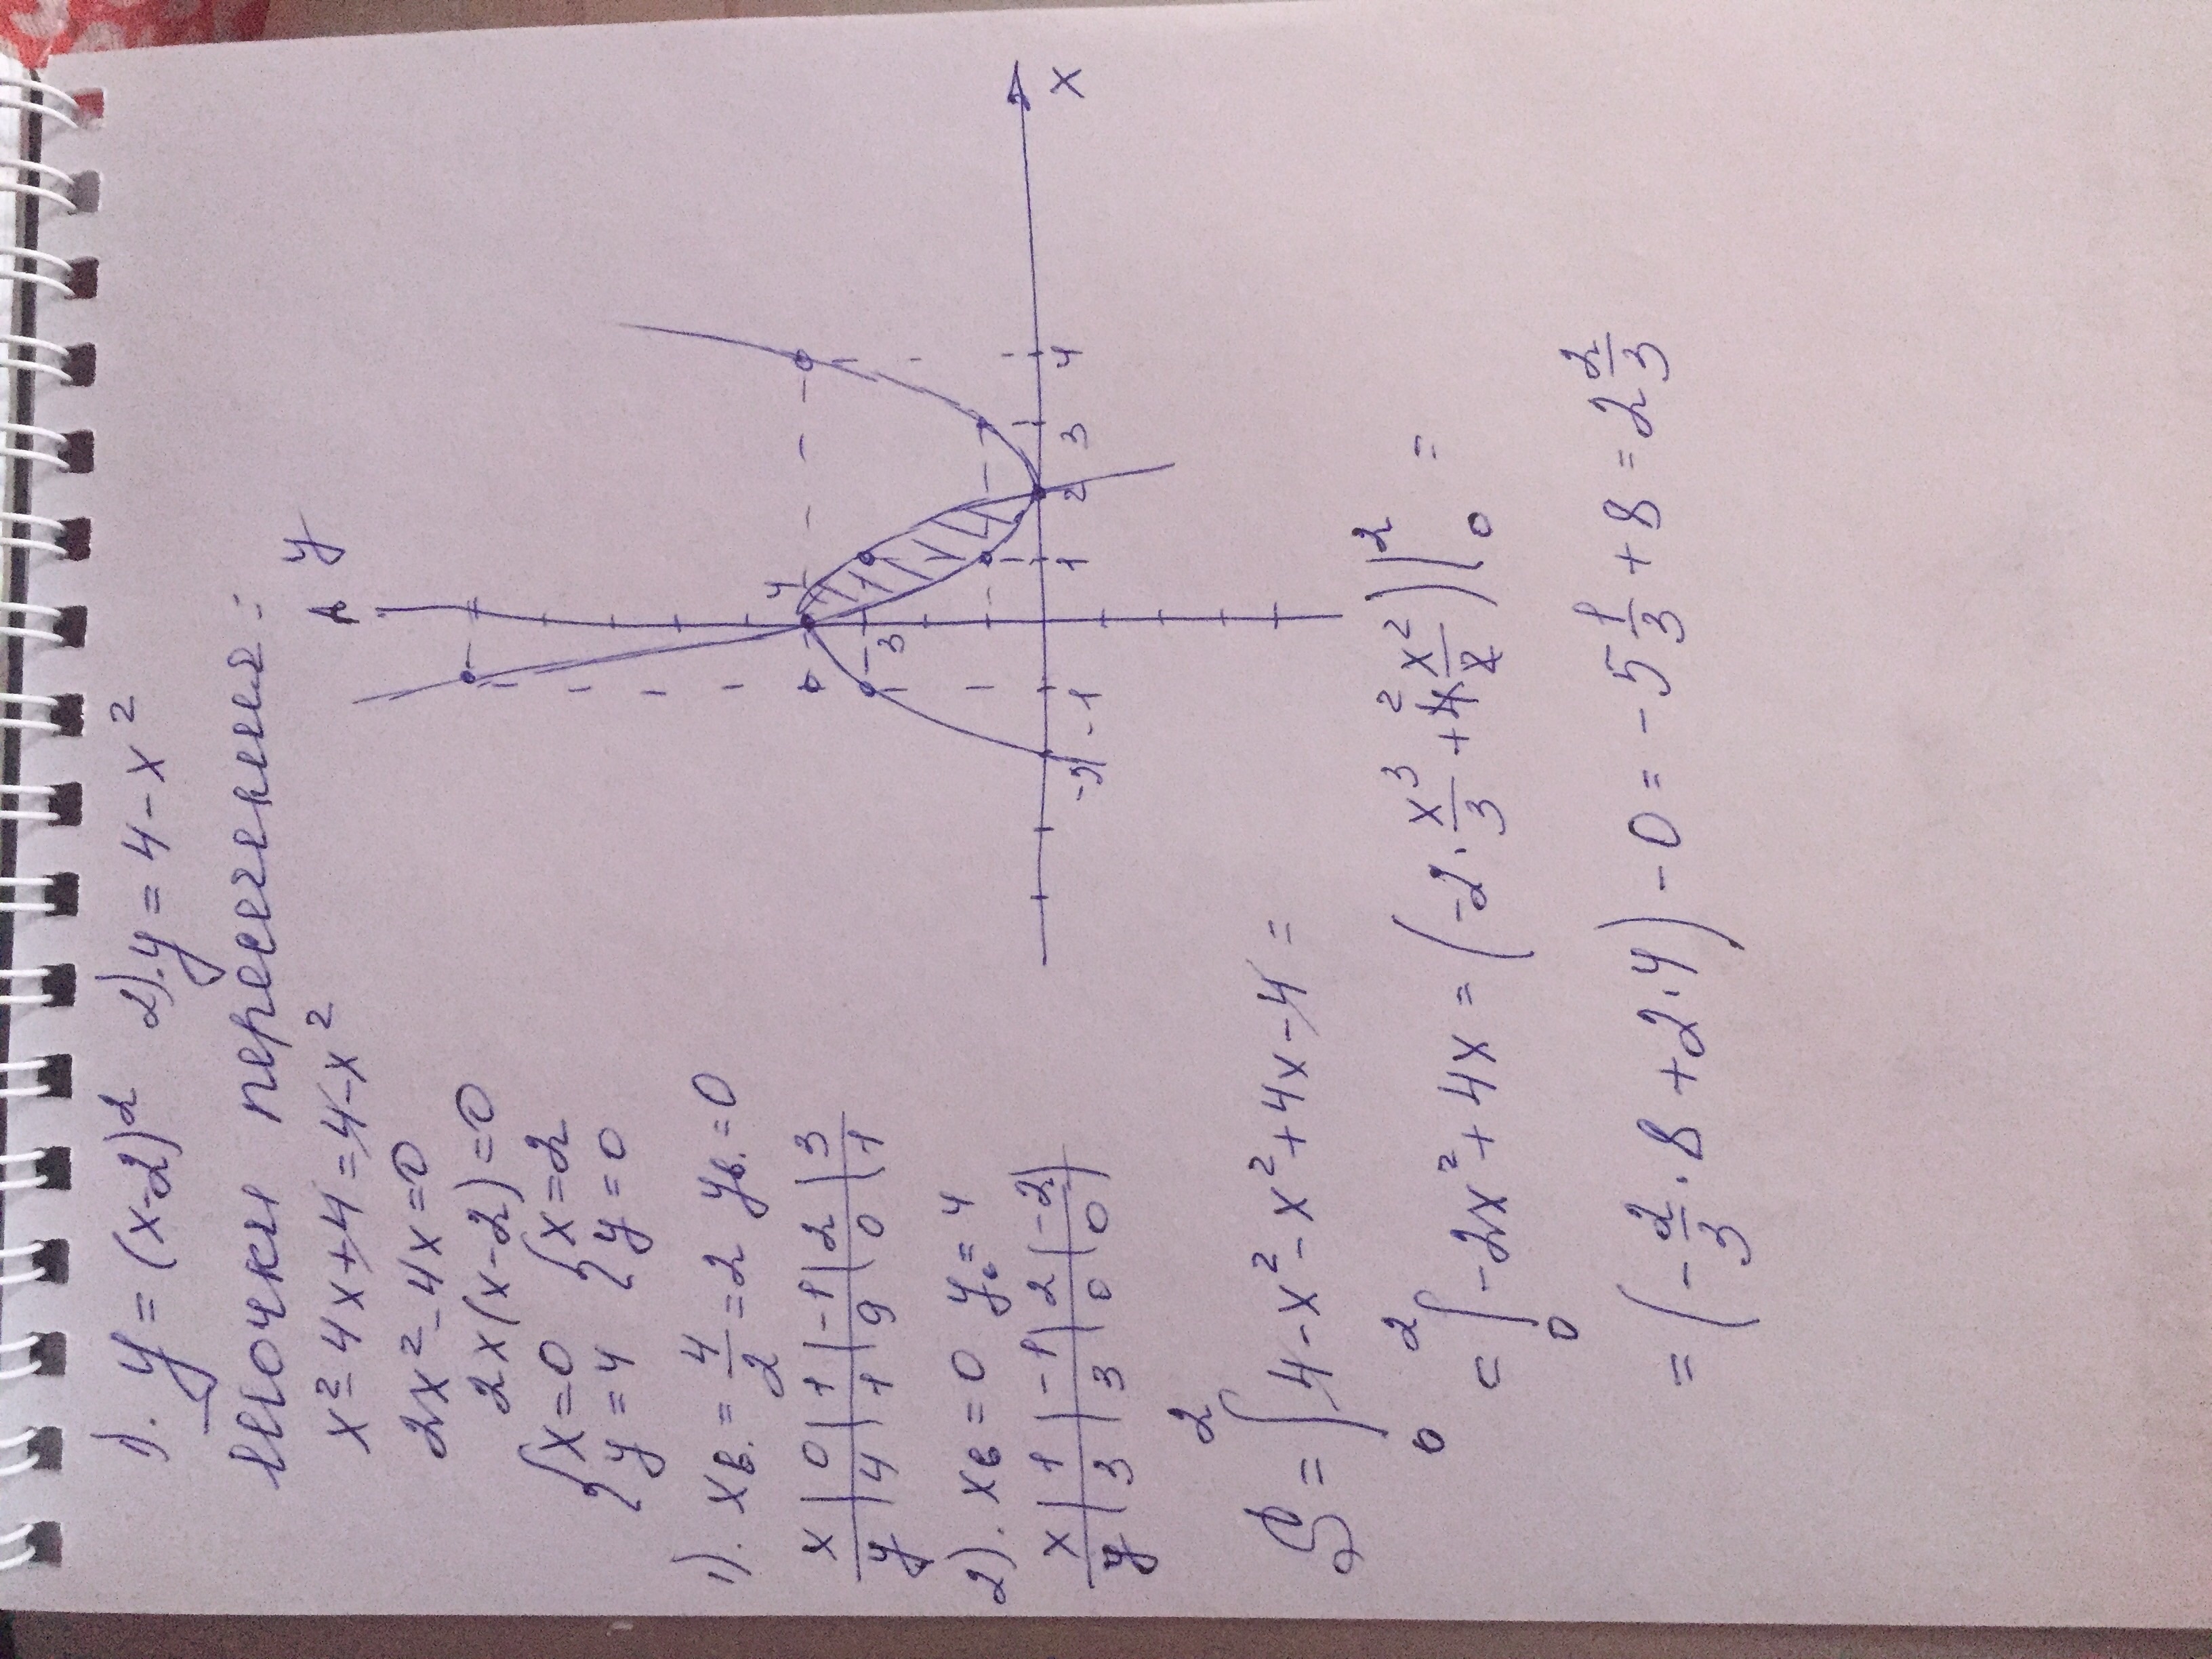 1). y = (x-2)² 2). y = 4 - x²
точки пересечения:
x² - 4x + 4 = 4 - x²
2x² - 4x = 0
2x(x-2) = 0
{x=0 {x=2
{y=4 {y=0
1). xв. = 4/2 = 2 yв. = 0
x | 0 | 1 | -1 | 2 | 3
y | 4 | 1 | 9 | 0 | 1
2). xв = 0 yв = 4
x | 1 | -1 | 2 | -2
y | 3 | 3 | 0 | 0
y
4
3
0
-2 -1 1 2 3 4 x
S = ∫₀² 4 - x² - x² + 4x - 4 =
= ∫₀² -2x² + 4x = (-2 · x³/3 + 4² x²/2)|₀² =
= (-2/3 · 8 + 2 · 4) - 0 = -5 1/3 + 8 = 2 2/3